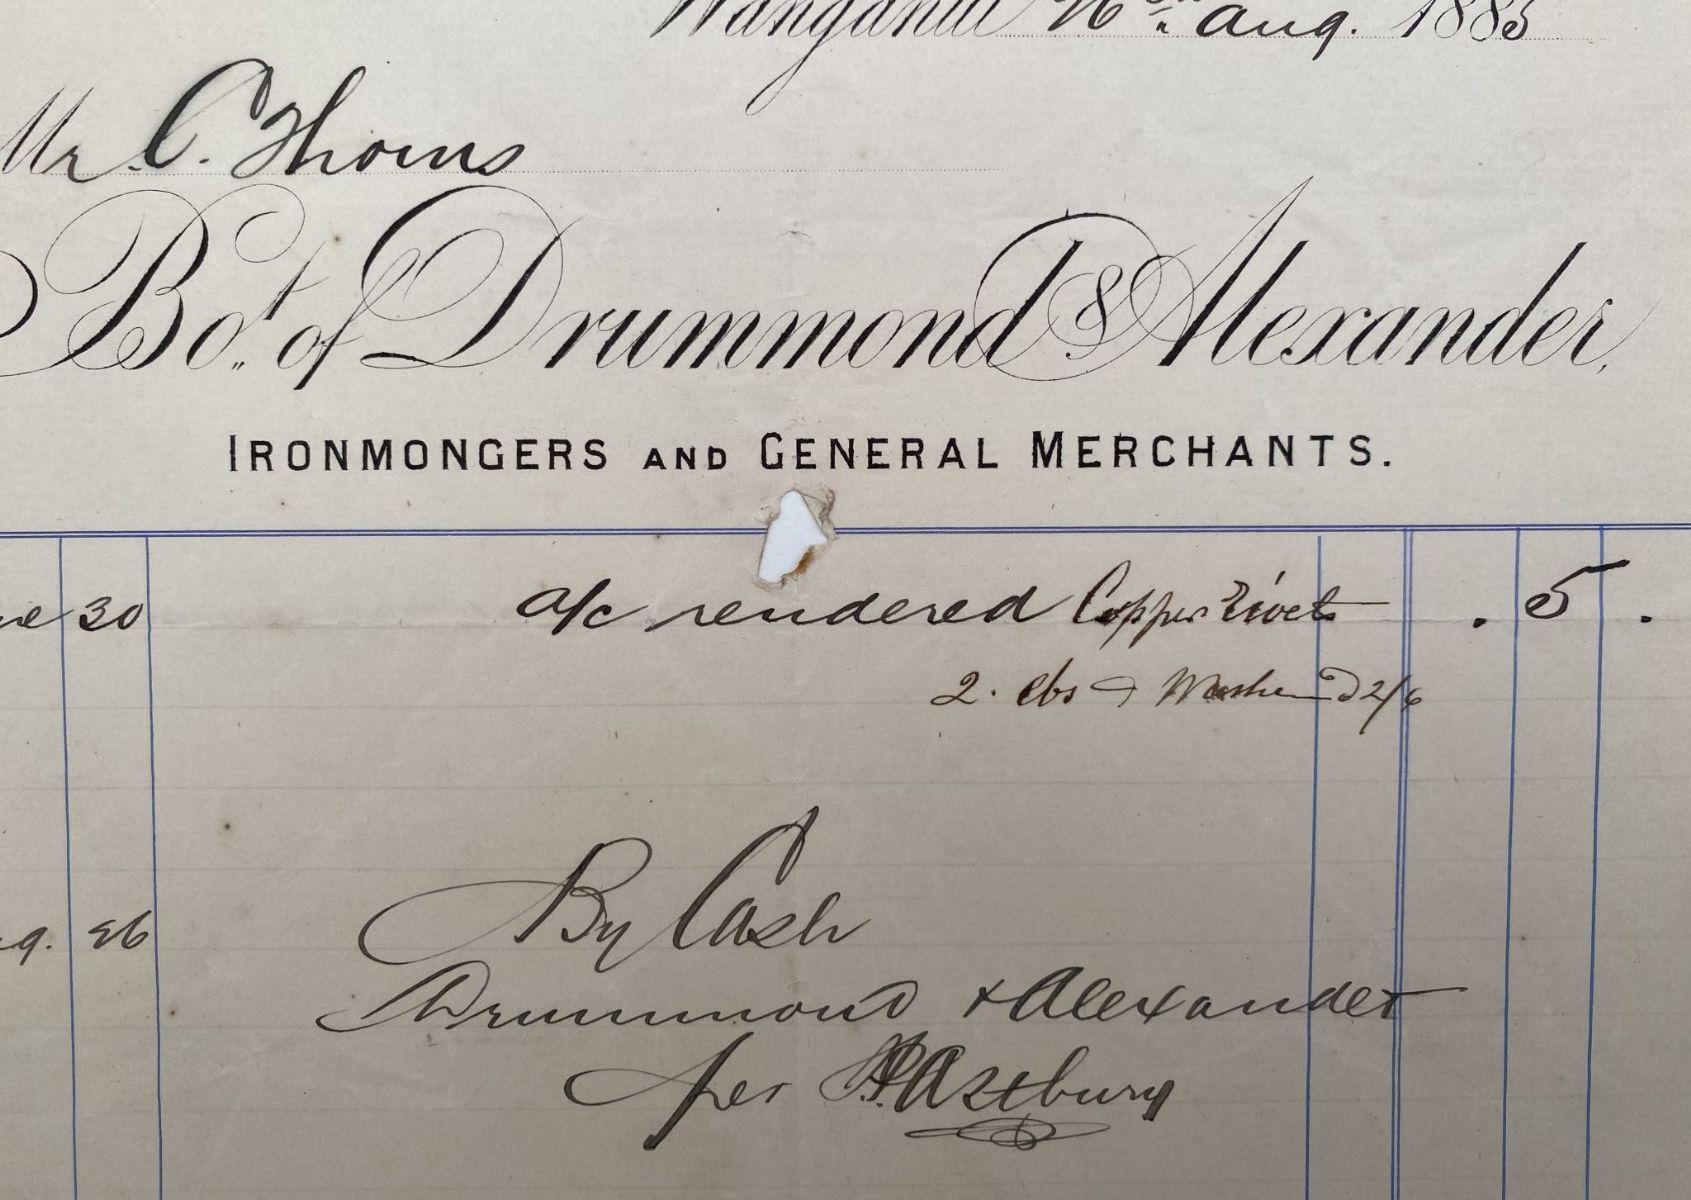 Wanganui 26th Aug. 1885
Mr. C. Thoms
Bo.t of Drummond & Alexander,
IRONMONGERS AND GENERAL MERCHANTS.
30 a/c rendered Copper Rivets . 5 .
2. lbs & Washers 2/6
26 By Cash
Drummond & Alexander
per Astbury